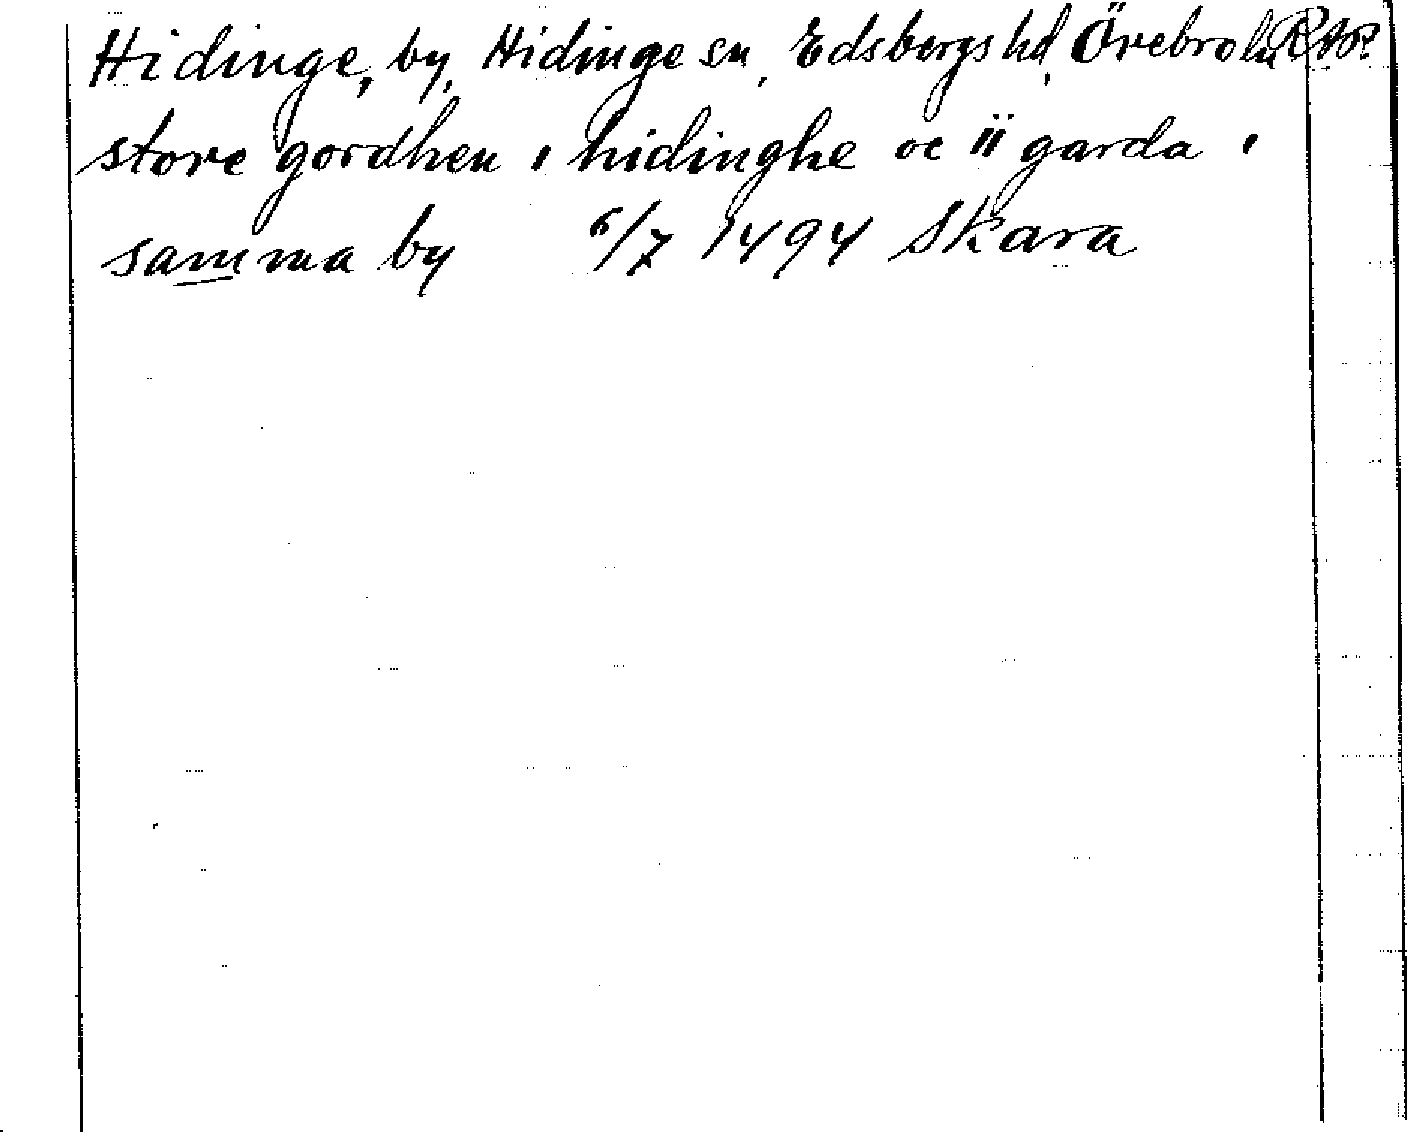 Hidinge, by, Hidinge sn, Edsbergs hd, Örebro län
store gordhen i hidinghe oc ii garda i
samma by 6/7 1494 Skara